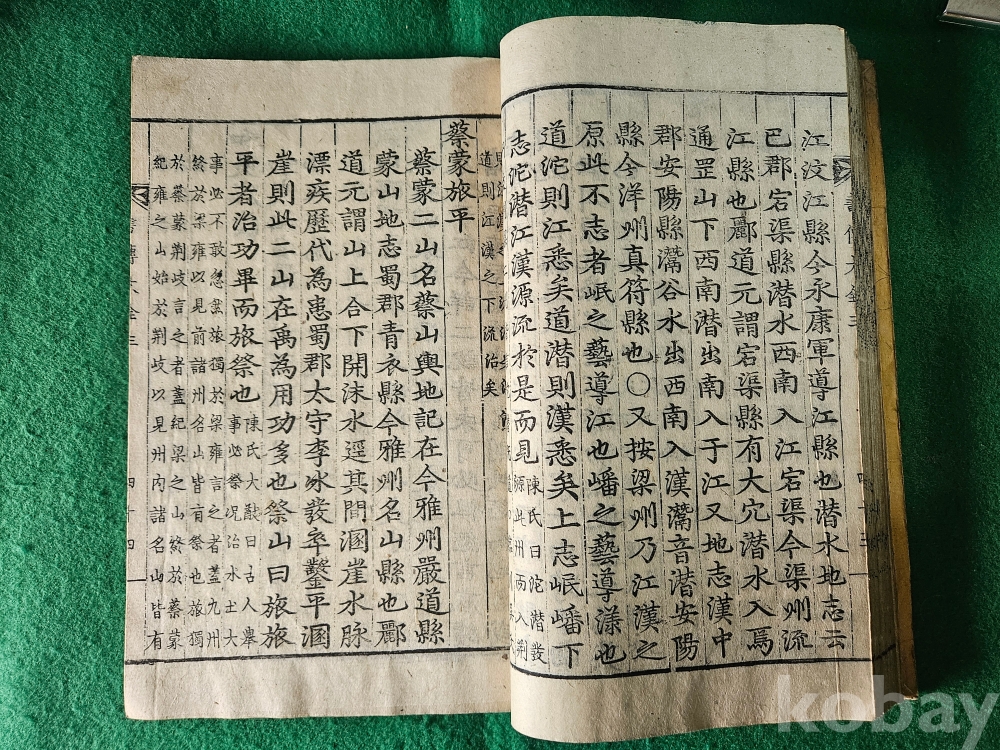 江汶江縣今永康軍導江縣也潛水地志云
巴郡宕渠縣潛水西南入江宕渠今渠州流
江縣也酈道元謂宕渠縣有大穴潛水入焉
通罡山下西南潛出南入于江又地志漢中
郡安陽縣灊谷水出西南入漢灊音潛安陽
縣今洋州真符縣也○又按梁州乃江漢之
原此不志者岷之藝導江也嶓之藝導漾也
道沱則江悉矣道潛則漢悉矣上志岷嶓下
志沱潛江漢源流於是而見
陳氏曰沱潛發
源此州而入荆
道則江漢之下流治矣
蔡蒙旅平
蔡蒙二山名蔡山輿地記在今雅州嚴道縣
蒙山地志蜀郡青衣縣今雅州名山縣也酈
道元謂山上合下開沫水逕其間溷崖水脉
漂疾歷代為患蜀郡太守李冰發卒鑿平溷
崖則此二山在禹為用功多也祭山曰旅旅
平者治功畢而旅祭也
陳氏大猷曰古人舉
事必祭况治水土大
事必不敢忽然旅獨於梁雍言之者蓋九州
終於梁雍以見前諸州名山皆有祭也旅獨
於蔡蒙荆岐言之者蓋紀梁之山終於蔡蒙
紀雍之山始於荆岐以見州内諸名山皆有
四十四
kobay